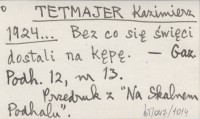 TETMAJER Kazimierz
1924... Bez co się święci
dostali na kępę. — Gaz.
Podh. 12, nr 13.
Przedruk z "Na Skalnem
Podhalu".